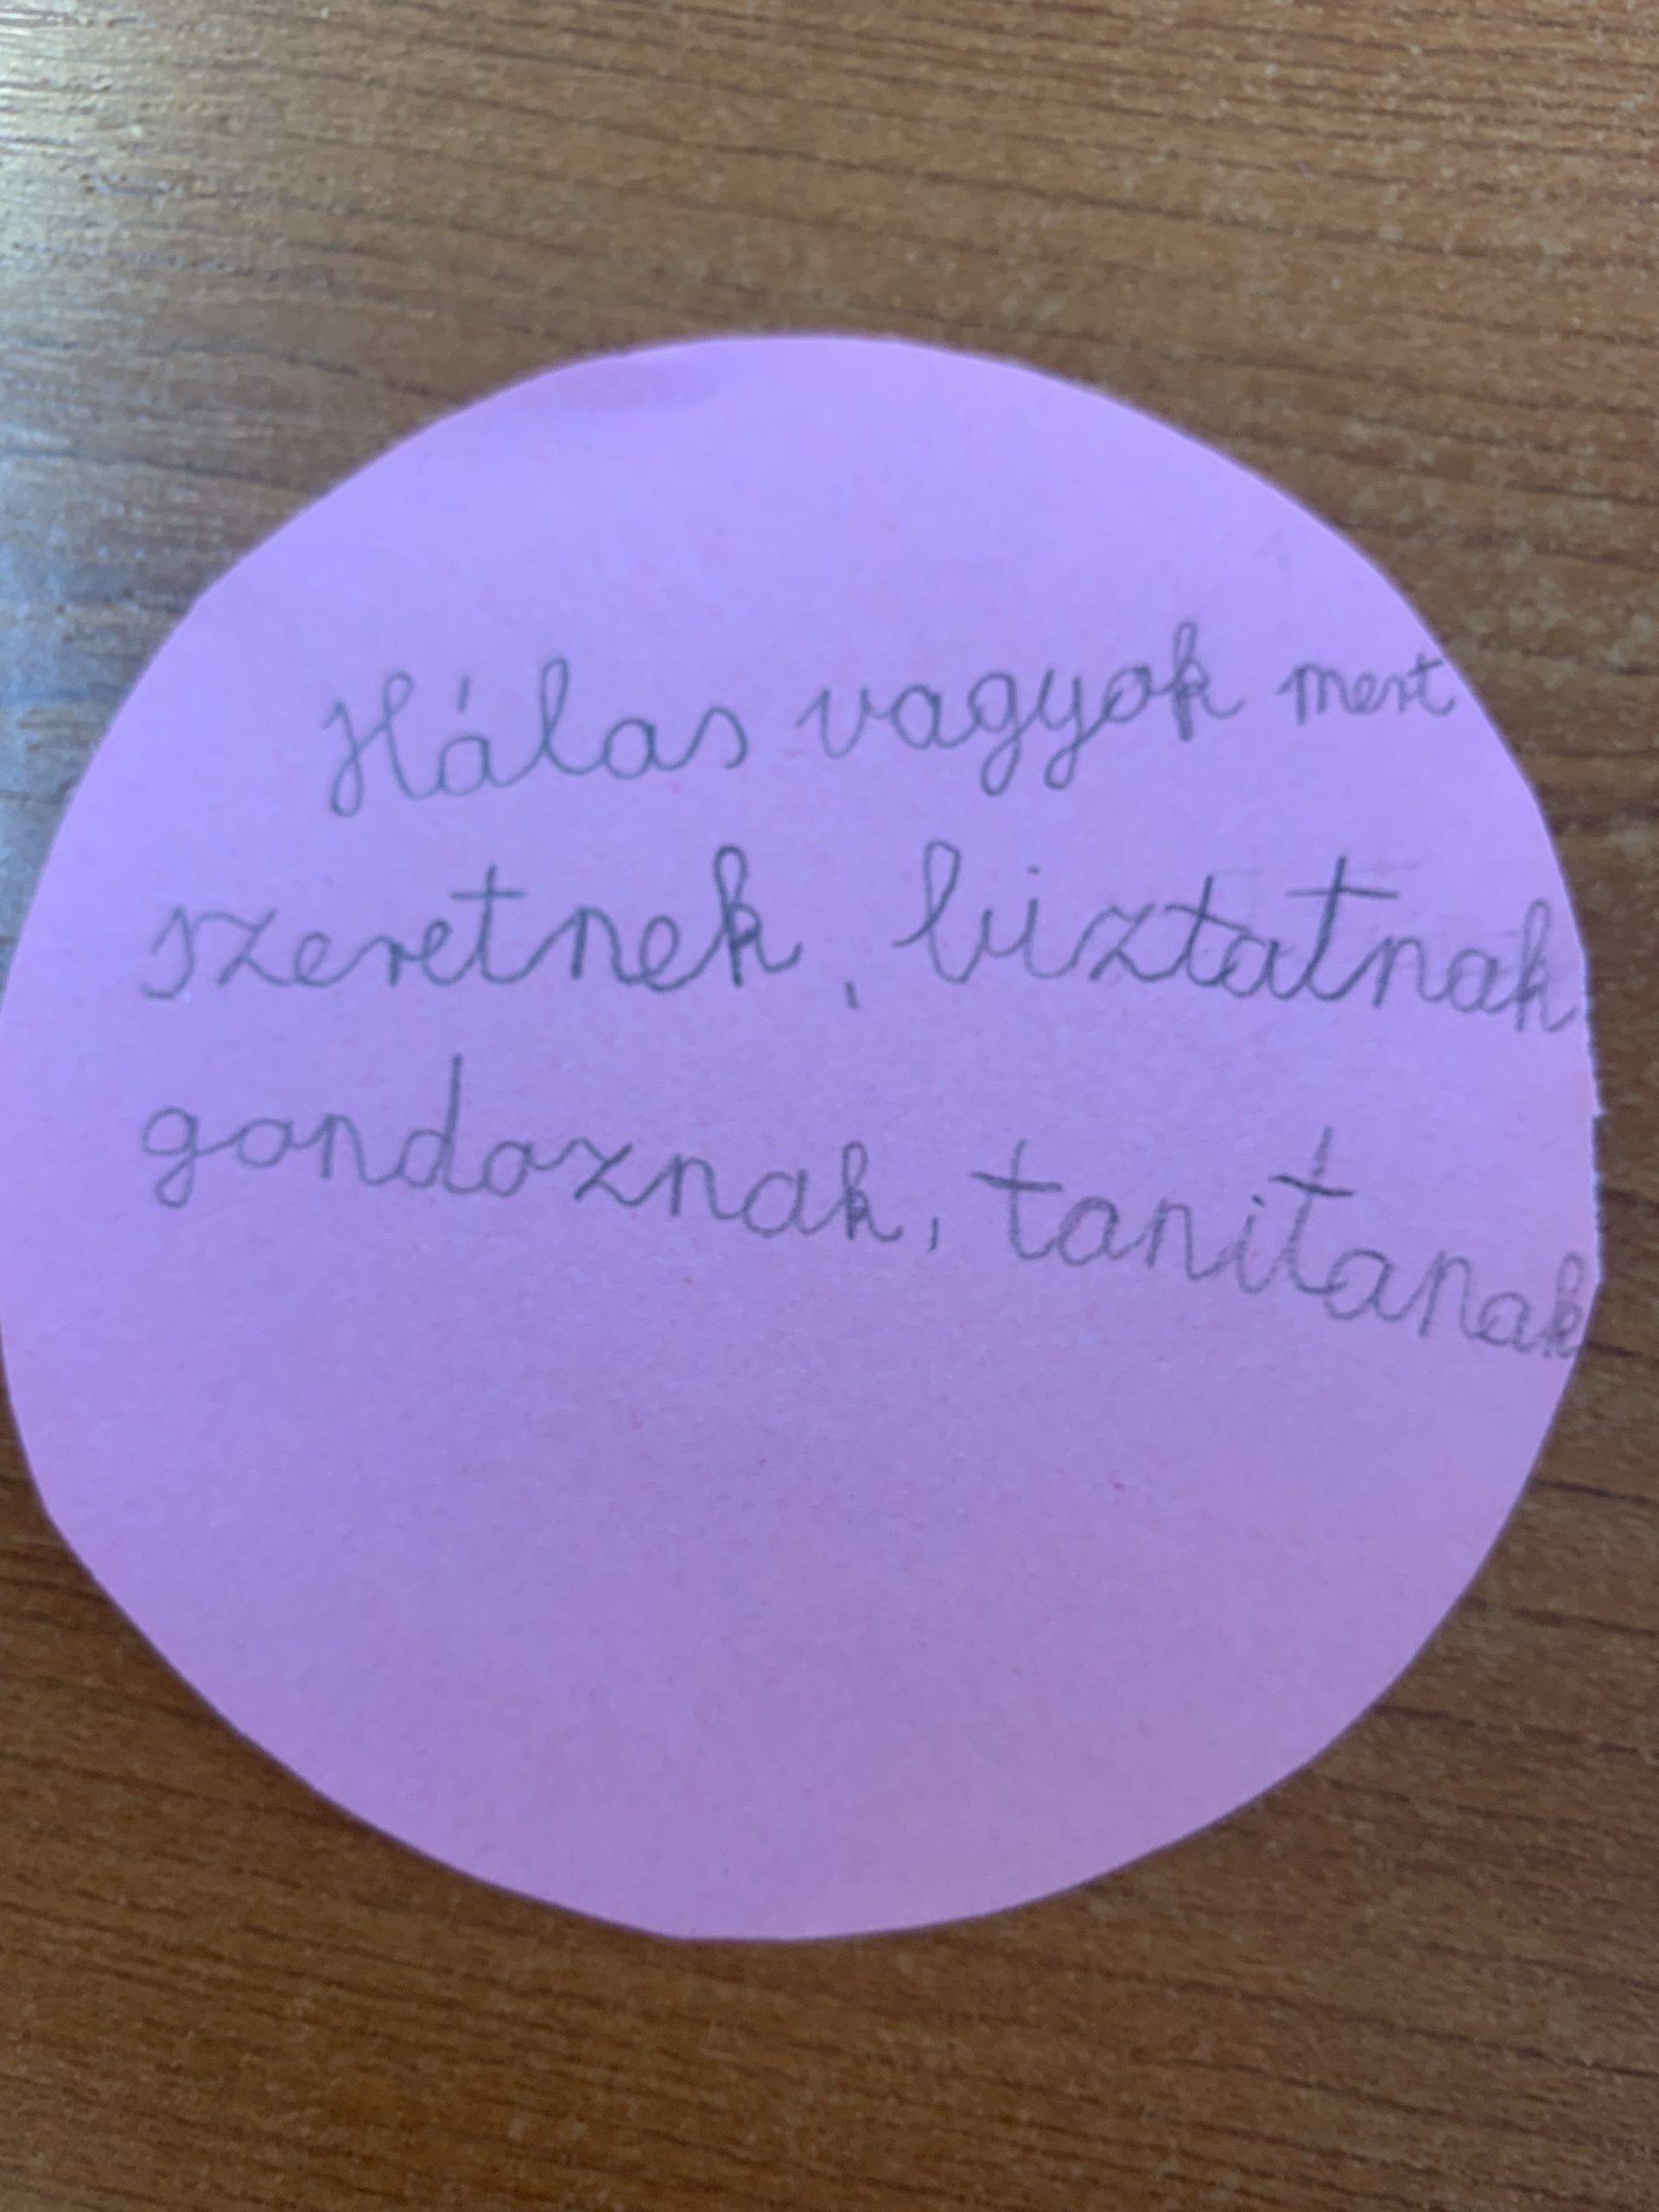 Hálas vagyok mert
szeretnek, biztatnak
gondoznak, tanitanak